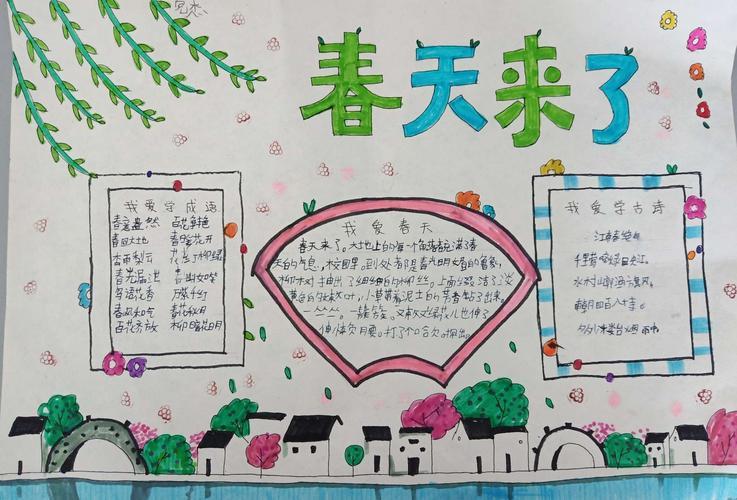 春天来了
我爱学成语
春意盎然 百花争艳
春回大地 春暖花开
春光
鸟语花香 万紫千红
春风和气
百花齐放 柳暗花明
我爱春天
春天来了。大地上的每一个角落都充满了春
天的气息，校园里。到处都是春光明媚的景象，
柳树抽出了细细的柳丝。上面缀活了淡
黄色的 叶，小草带着泥土的芳香钻了出来。
一丛丛。一簇簇。又 花儿也伸了
伸懒 腰。打了个哈欠。
我爱学古诗
江南春绝句
千里莺啼绿映红，
水村山郭酒旗风。
南朝四百八十寺，
多少楼台烟雨中